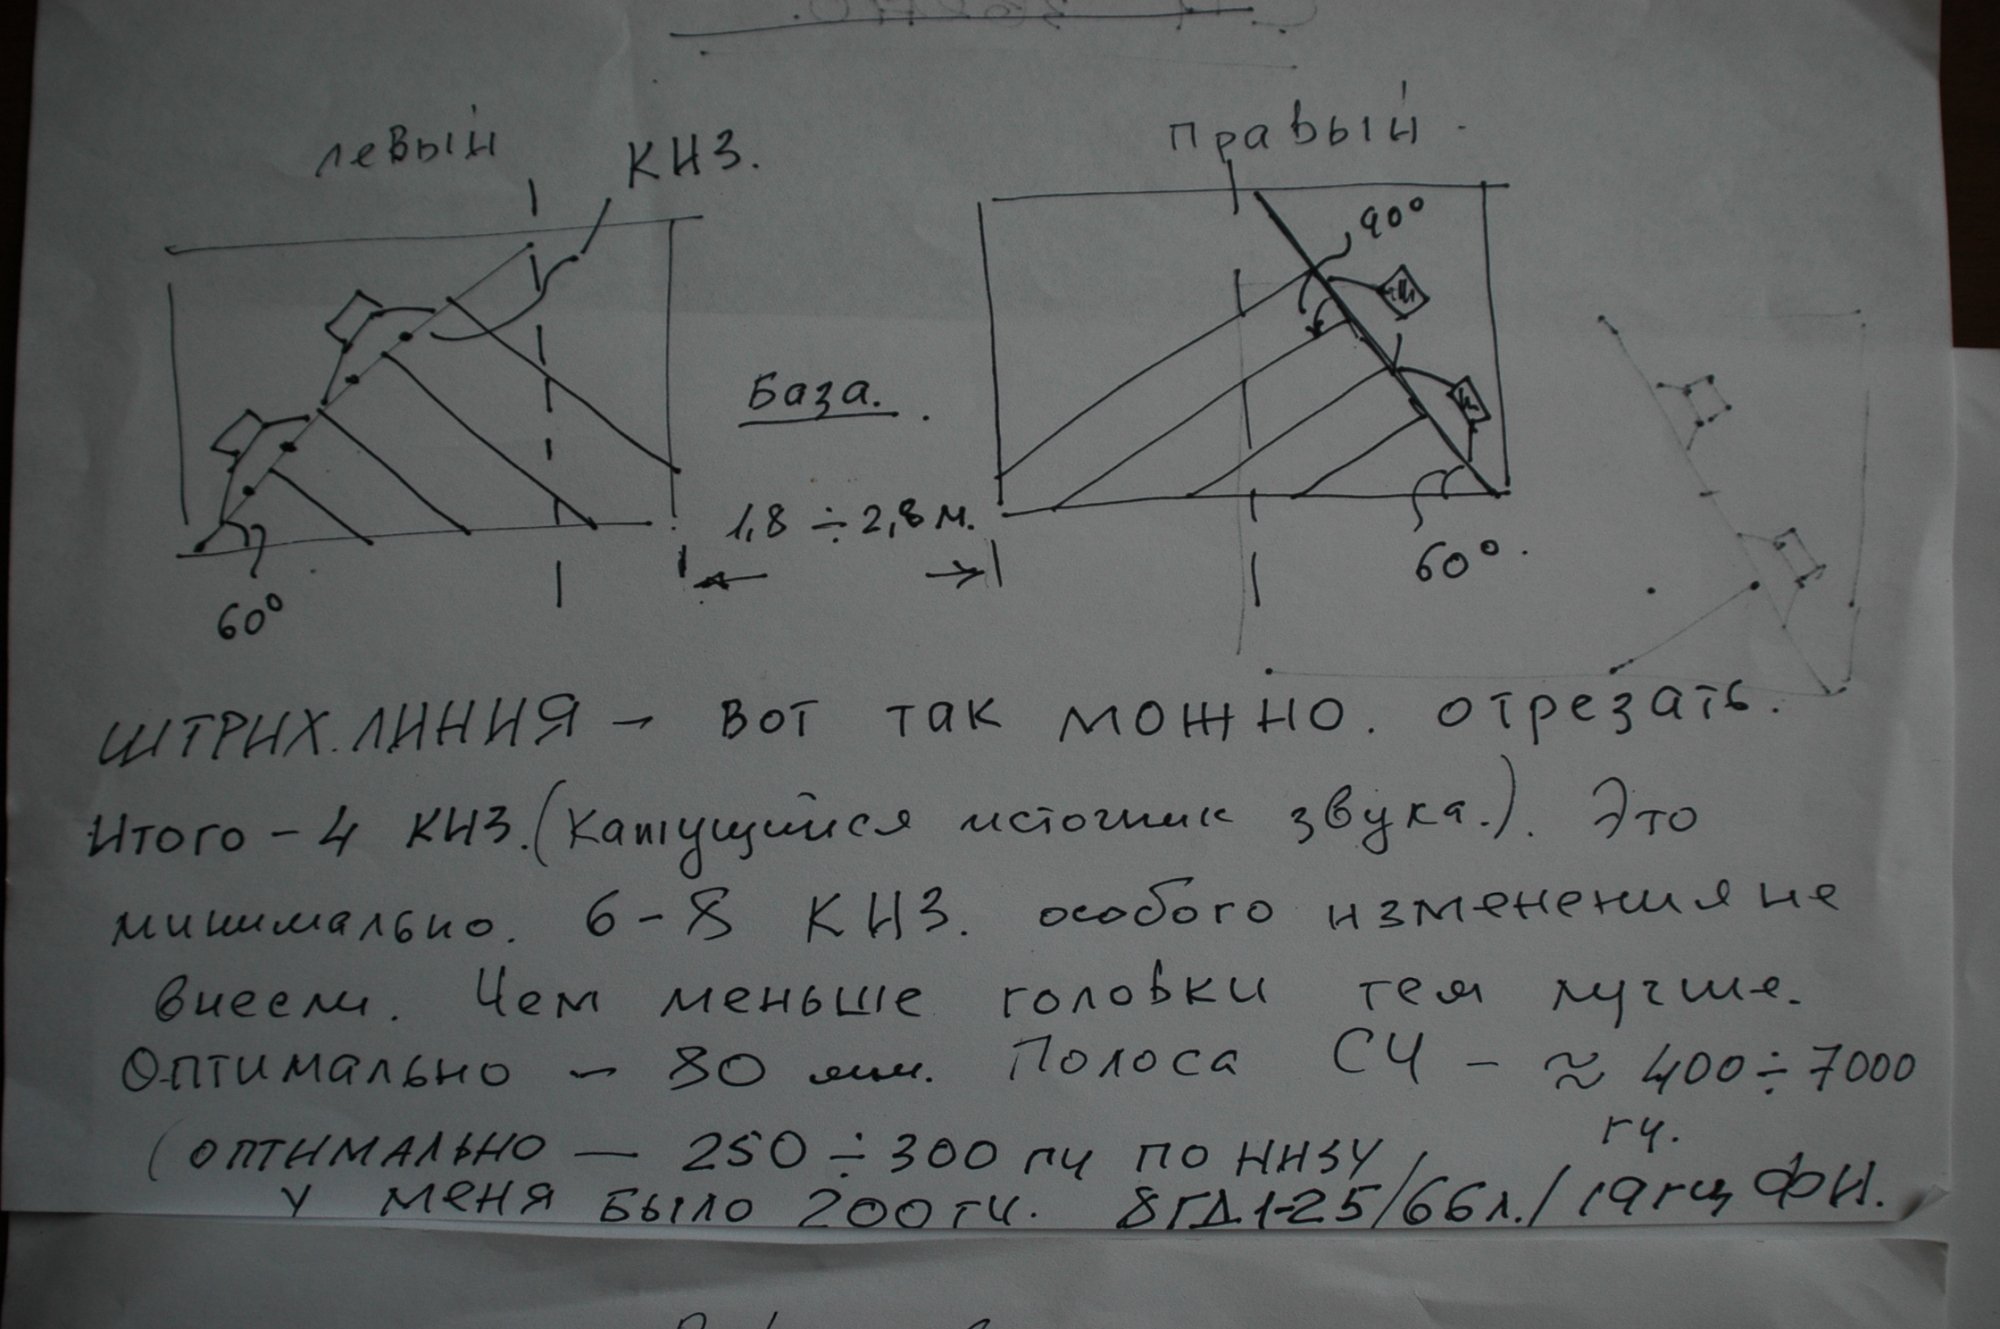 левый
КНЗ.
правый.
90°
База.
1,8 ÷ 2,8 м.
60°
60°.
ШТРИХ. ЛИНИЯ – вот так можно. отрезать.
Итого – 4 КНЗ. (Катущийся источник звука.). Это
минимально. 6 – 8 КНЗ. особого изменения не
внесли. Чем меньше головки тем лучше.
Оптимально – 80 мм. Полоса СЧ – ≈ 400 ÷ 7000
гц.
(оптимально — 250 ÷ 300 гц по низу
У меня было 200 гц. 8ГД1-25/66л./19гц ФИ.